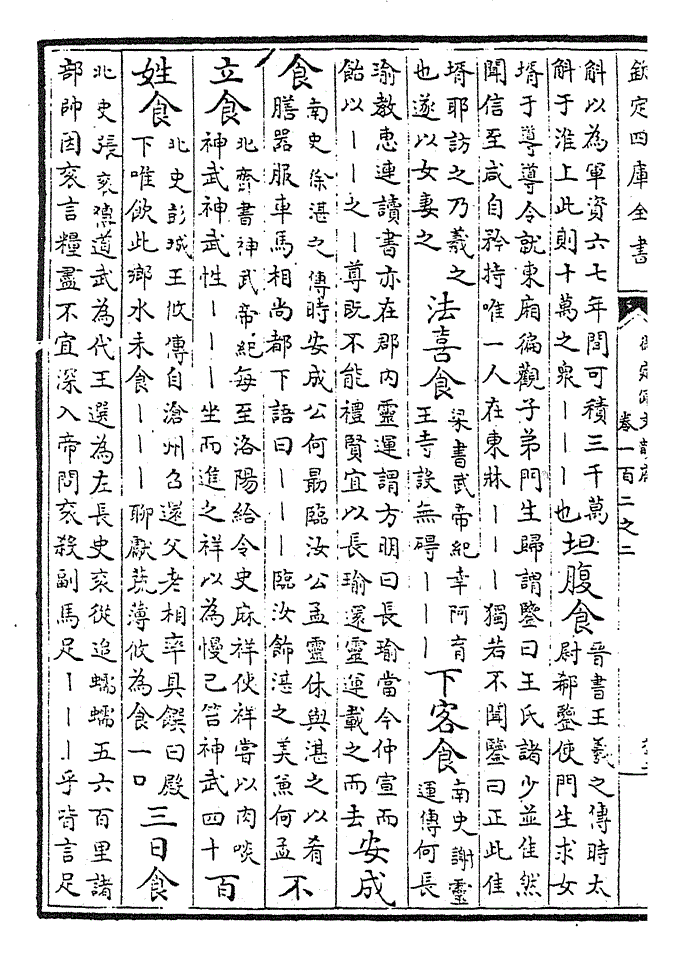 欽定四庫全書
御定佩文韻府
卷一百二之二
斛以為軍資六七年間可積三千萬
斛于淮上此則十萬之衆｜｜｜也
坦腹食
晉書王羲之傳時太
尉郗鑒使門生求女
壻于導導令就東廂徧觀子弟門生歸謂鑒曰王氏諸少並佳然
聞信至咸自矜持唯一人在東牀｜｜｜獨若不聞鑒曰正此佳
壻耶訪之乃羲之
也遂以女妻之
法喜食
梁書武帝紀幸阿育
王寺設無碍｜｜｜
下客食
南史謝靈
運傳何長
瑜教惠連讀書亦在郡內靈運謂方明曰長瑜當今仲宣而
飴以｜｜之｜尊既不能禮賢宜以長瑜還靈運載之而去
安成
食
南史徐湛之傳時安成公何勗臨汝公孟靈休與湛之以肴
膳器服車馬相尚都下語曰｜｜｜臨汝飾湛之美兼何孟
不
立食
北齊書神武帝紀每至洛陽給令史麻祥使祥嘗以肉啖
神武神武性｜｜｜坐而進之祥以為慢己笞神武四十
百
姓食
北史彭城王浟傳自滄州召還父老相率具饌曰殿
下唯飲此鄉水未食｜｜｜聊獻蔬薄浟為食一口
三日食
北史張袞傳道武為代王選為左長史袞從追蠕蠕五六百里諸
部帥因袞言糧盡不宜深入帝問袞殺副馬足｜｜｜乎皆言足